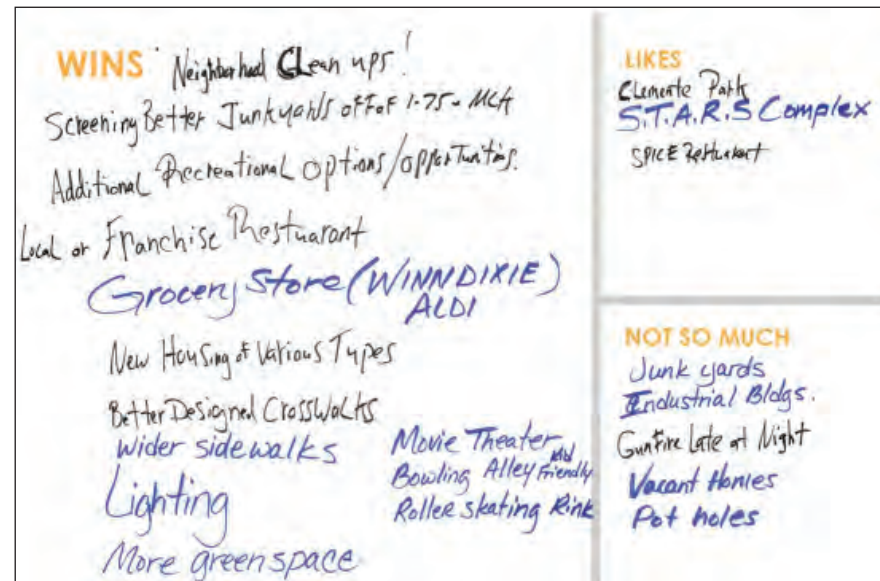 WINS Neighborhood Clean ups!
Screening Better Junkyards off of I-75 - MLK
Additional Recreational options/opportunities.
Local or Franchise Restuarant
Grocery Store (WINN DIXIE)
ALDI
New Housing of Various Types
Better Designed CrossWalks
Wider sidewalks
Lighting
More greenspace
Movie Theater
Bowling Alley Kid Friendly
Roller skating Rink
LIKES
Clemente Park
S.T.A.R.S Complex
SPICE Restuarant
NOT SO MUCH
Junk yards
Industrial Bldgs.
GunFire Late at Night
Vacant Homes
Pot holes